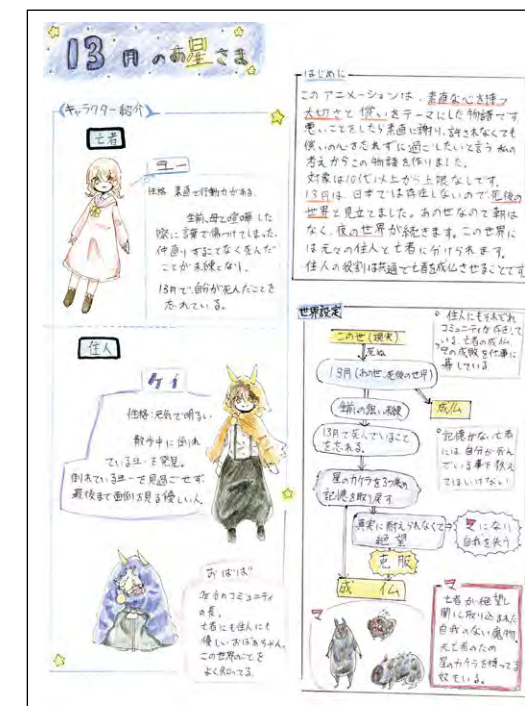 13月のお星さま
キャラクター紹介
亡者
ユー
性格 素直で行動力がある。
生前、母と喧嘩した
際に言葉で傷つけてしまった。
仲直りすることなく死んだ
ことが未練となり、
13月で自分が死んだことを
忘れている。
住人
ケイ
性格:元気で明るい
散歩中に倒れ
ているユーを発見。
倒れているユーを見過ごせず
最後まで面倒を見る優しい人
おばば
各自のコミュニティ
の長。
亡者にも住人にも
優しいおばあちゃん。
この世界のことを
よく知ってる。
はじめに
このアニメーションは、素直な心を持つ
大切さと償いをテーマにした物語です
悪いことをしたら素直に謝り、許されなくても
償いの心を忘れずに過ごしたいと言う私の
考えからこの物語を作りました。
対象は10代以上から上限なしです。
13月は日本では存在しないので、死後の
世界と見立てました。あの世なので朝は
なく、夜の世界が続きます。この世界に
は元々の住人と亡者に分けられます。
住人の役割は共通で亡者を成仏させることです
世界設定
この世(現実)
死ぬ
13月(あの世、死後の世界)
生前の強い未練
成仏
13月で死んでいること
を忘れる。
星のカケラを3つ集め
記憶を取り戻す
真実に耐えられなくて
絶望
マになり
自我を失う
克服
成仏
住人にもそれぞれ
コミュニティが存在して
いる。亡者の成仏、
マの成敗を仕事に
暮している
記憶がない亡者
には自分が死ん
でいる事を教え
てはいけない
マ
マ
亡者が絶望し
闇に取り込まれた
自我のない魔物。
元亡者のため
星のカケラを持ってる
奴もいる。